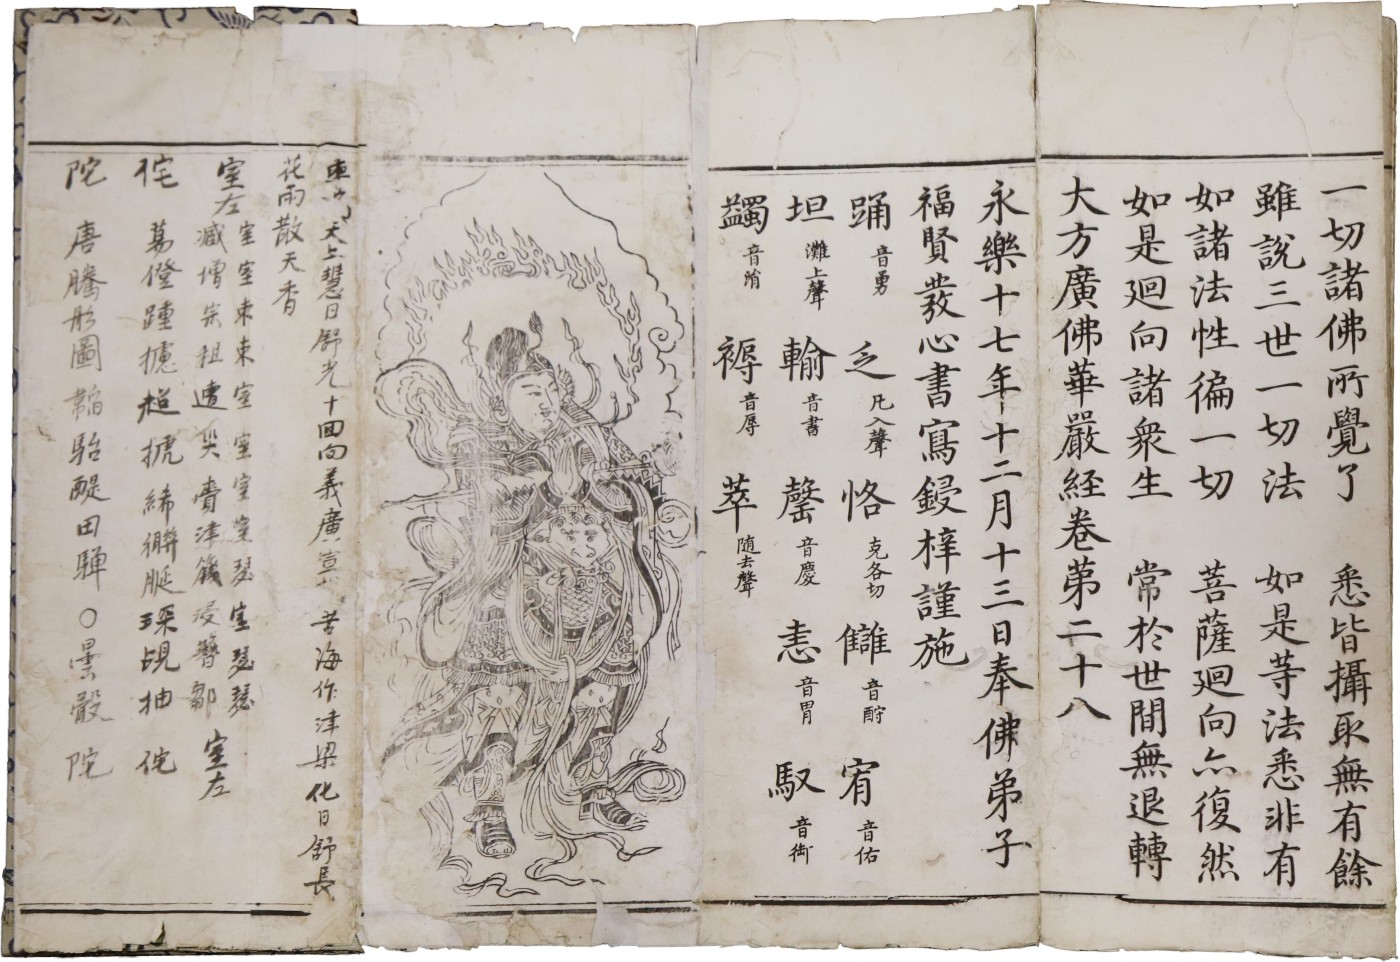 一切諸佛所覺了　悉皆攝取無有餘
雖說三世一切法　如是等法悉非有
如諸法性徧一切　菩薩廻向亦復然
如是廻向諸衆生　常於世間無退轉
大方廣佛華嚴経卷第二十八
永樂十七年十二月十三日奉佛弟子
福賢發心書寫鋟梓謹施
踊音勇　乏凡入聲　恪克各切　讎音酧　宥音佑
坦灘上聲　輸音書　罄音慶　恚音胃　馭音御
蠲音涓　褥音辱　萃随去聲
天上慧日舒光十回向義廣宣　苦海作津梁化日舒長
花雨散天香
室左　室室東東室室室室瑟室瑟瑟
臧增宗租遭　津　浸　鄒　室左
侘　　　超　　　　琛　抽　侘
陀　唐騰彤圖　駘醍田驒〇曇　陀